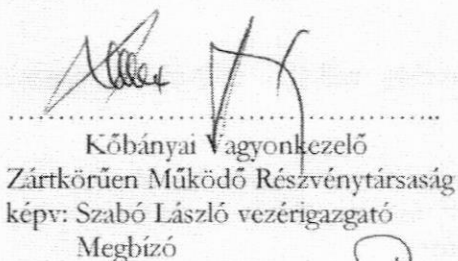 Kőbányai Vagyonkezelő
Zártkörűen Működő Részvénytársaság
képv: Szabó László vezérigazgató
Megbízó